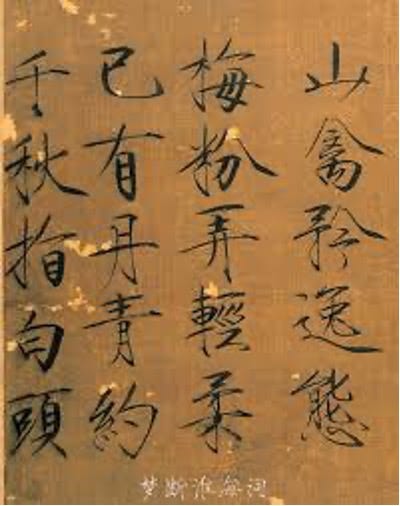 山禽矜逸態
梅粉弄輕柔
已有丹青約
千秋指白頭
梦断淮海词